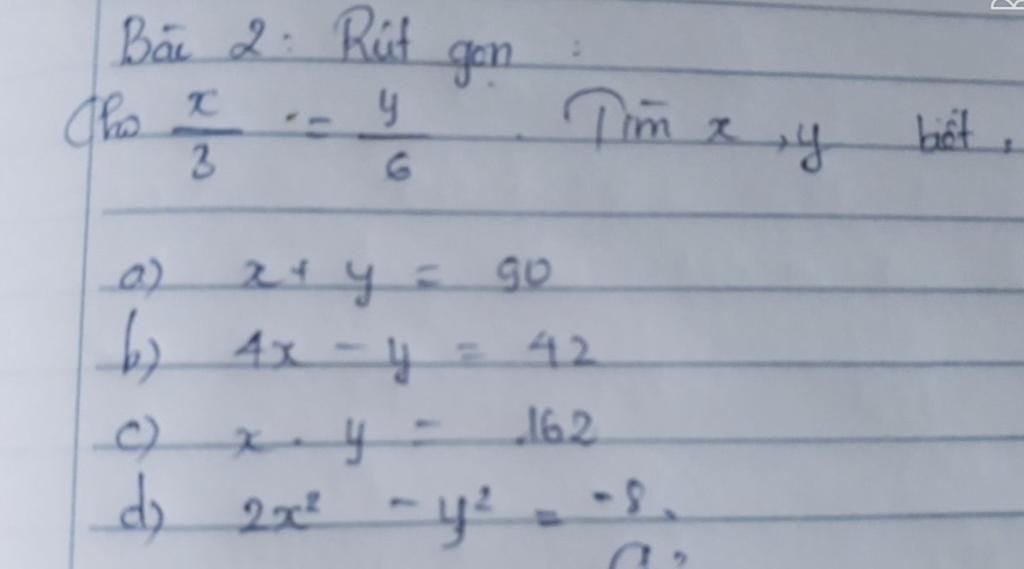 Bài 2: Rút gọn :
Cho x/3 = y/6 . Tìm x, y biết,
a) x + y = 90
b) 4x - y = 42
c) x . y = 162
d) 2x² - y² = -8.